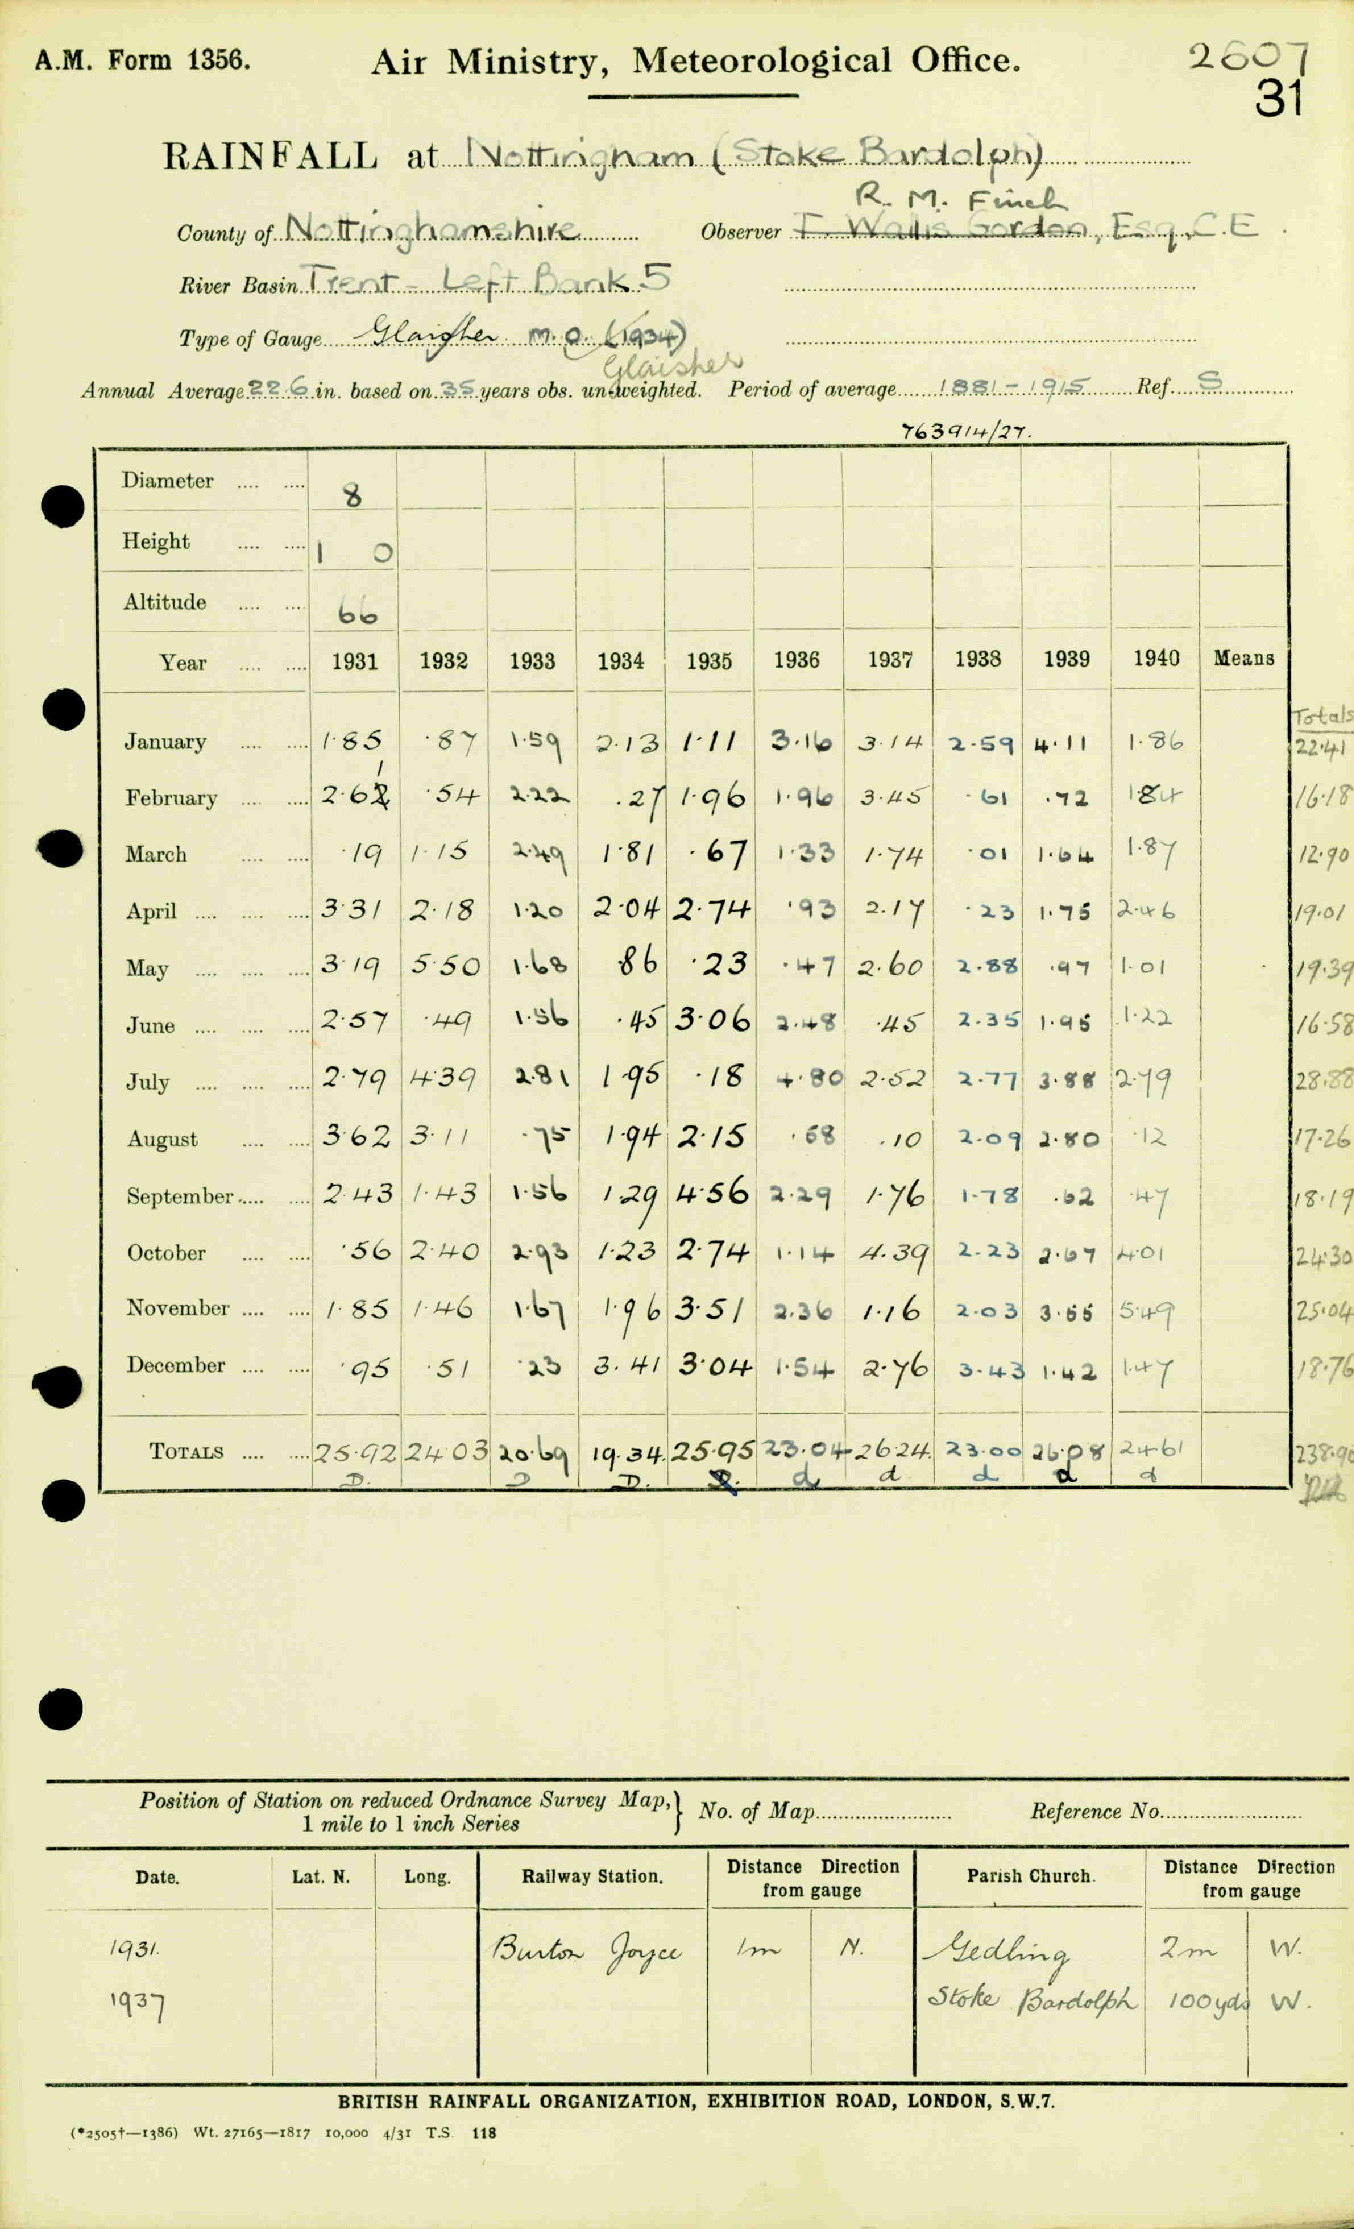 A.M. Form 1356. Air Ministry, Meteorological Office. 2607
31
RAINFALL at Nottingham (Stoke Bardolph)
R. M. Finch
County of Nottinghamshire Observer F. Wallis Gordon, Esq., C.E.
River Basin Trent - Left Bank 5
Type of Gauge Glaisher M.O. (1934)
Glaisher
Annual Average 22.6 in. based on 35 years obs. un-weighted. Period of average 1881-1915 Ref. S
763914/27.
Diameter .... .... 8
Height .... .... 1 0
Altitude .... .... 66
Year .... .... 1931 1932 1933 1934 1935 1936 1937 1938 1939 1940 Means
Totals
January .... .... 1.85 .87 1.59 2.13 1.11 3.16 3.14 2.59 4.11 1.86 22.41
1
February .... .... 2.62 .54 2.22 .27 1.96 1.96 3.45 .61 .72 1.84 16.18
March .... .... .19 1.15 2.49 1.81 .67 1.33 1.74 .01 1.64 1.87 12.90
April .... .... .... 3.31 2.18 1.20 2.04 2.74 .93 2.17 .23 1.75 2.46 19.01
May .... .... .... 3.19 5.50 1.68 .86 .23 .47 2.60 2.88 .97 1.01 19.39
June .... .... .... 2.57 .49 1.56 .45 3.06 2.48 .45 2.35 1.95 1.22 16.58
July .... .... .... 2.79 4.39 2.81 1.95 .18 4.80 2.52 2.77 3.88 2.79 28.88
August .... .... 3.62 3.11 .75 1.94 2.15 .58 .10 2.09 2.80 .12 17.26
September .... .... 2.43 1.43 1.56 1.29 4.56 2.29 1.76 1.78 .62 .47 18.19
October .... .... .56 2.40 2.93 1.23 2.74 1.14 4.39 2.23 2.67 4.01 24.30
November .... .... 1.85 1.46 1.67 1.96 3.51 2.36 1.16 2.03 3.55 5.49 25.04
December .... .... .95 .51 .23 3.41 3.04 1.54 2.76 3.43 1.42 1.47 18.76
TOTALS .... .... 25.92 24.03 20.69 19.34 25.95 23.04 26.24 23.00 26.08 24.61 238.90
D. D D. d d d d d
Position of Station on reduced Ordnance Survey Map,} No. of Map Reference No.
1 mile to 1 inch Series
Date. Lat. N. Long. Railway Station. Distance Direction from gauge Parish Church. Distance Direction from gauge
1931. Burton Joyce 1m N. Gedling 2m W.
1937 Stoke Bardolph 100yds W.
BRITISH RAINFALL ORGANIZATION, EXHIBITION ROAD, LONDON, S.W.7.
(*2505†—1386) Wt. 27165—1817 10,000 4/31 T.S. 118